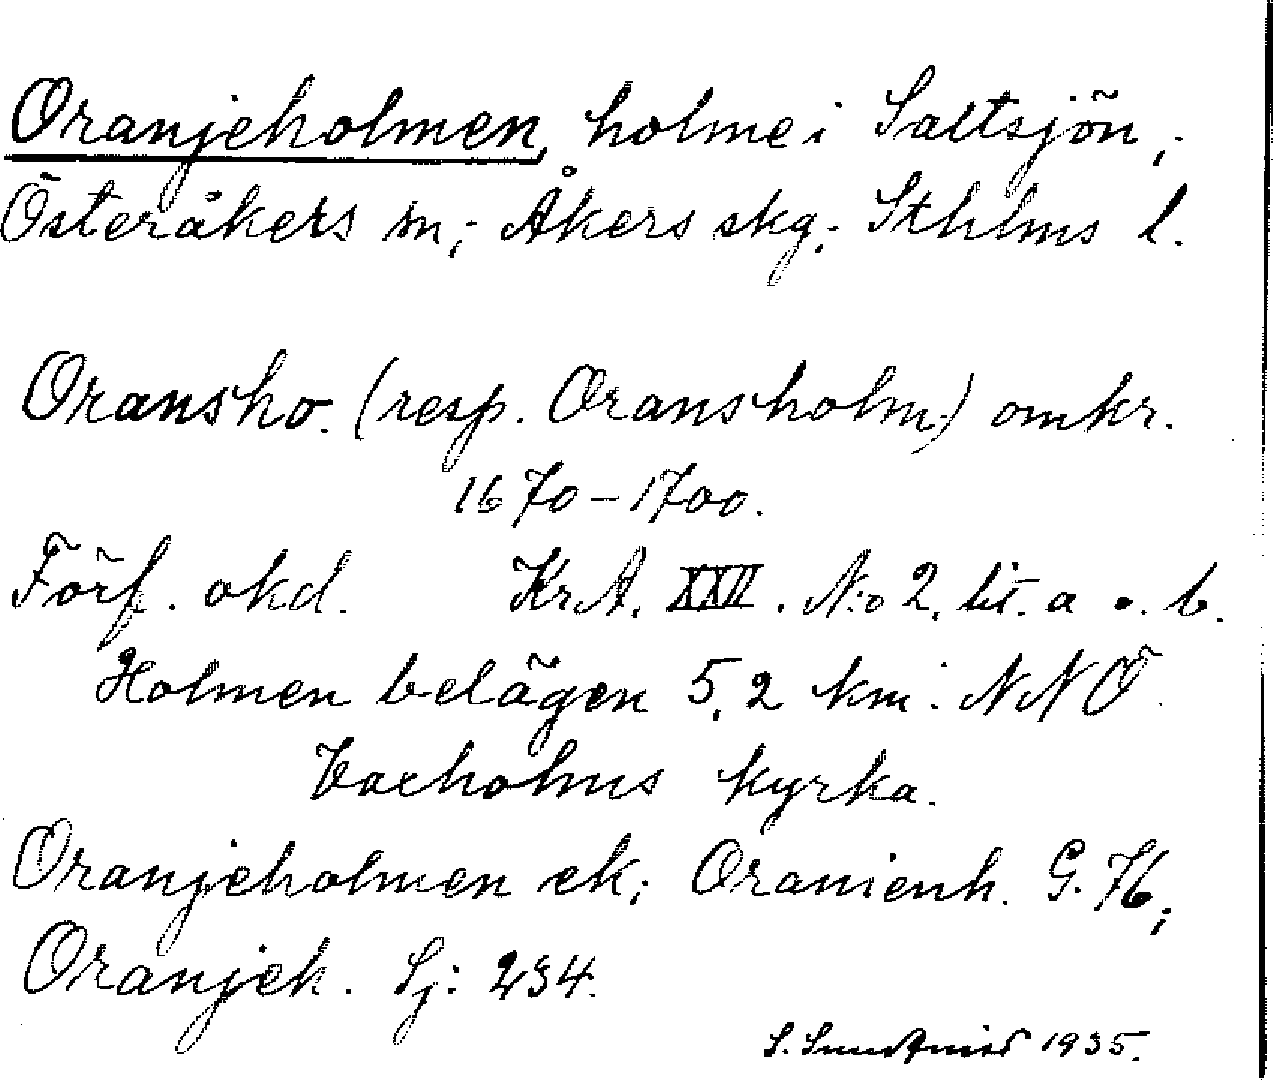 Oranjeholmen, holme i Saltsjön,
Österåkers sn, Åkers skg, Sthlms l.
Oransho. (resp. Oransholm.) omkr.
1670–1700.
Förf. okd. KrA. XXVI. N:o 2. lit. a o. b.
Holmen belägen 5,2 km. NNÖ
Vaxholms kyrka.
Oranjeholmen ek; Oranienh. G. 76;
Oranjeh. Sj: 234.
S. 1935.